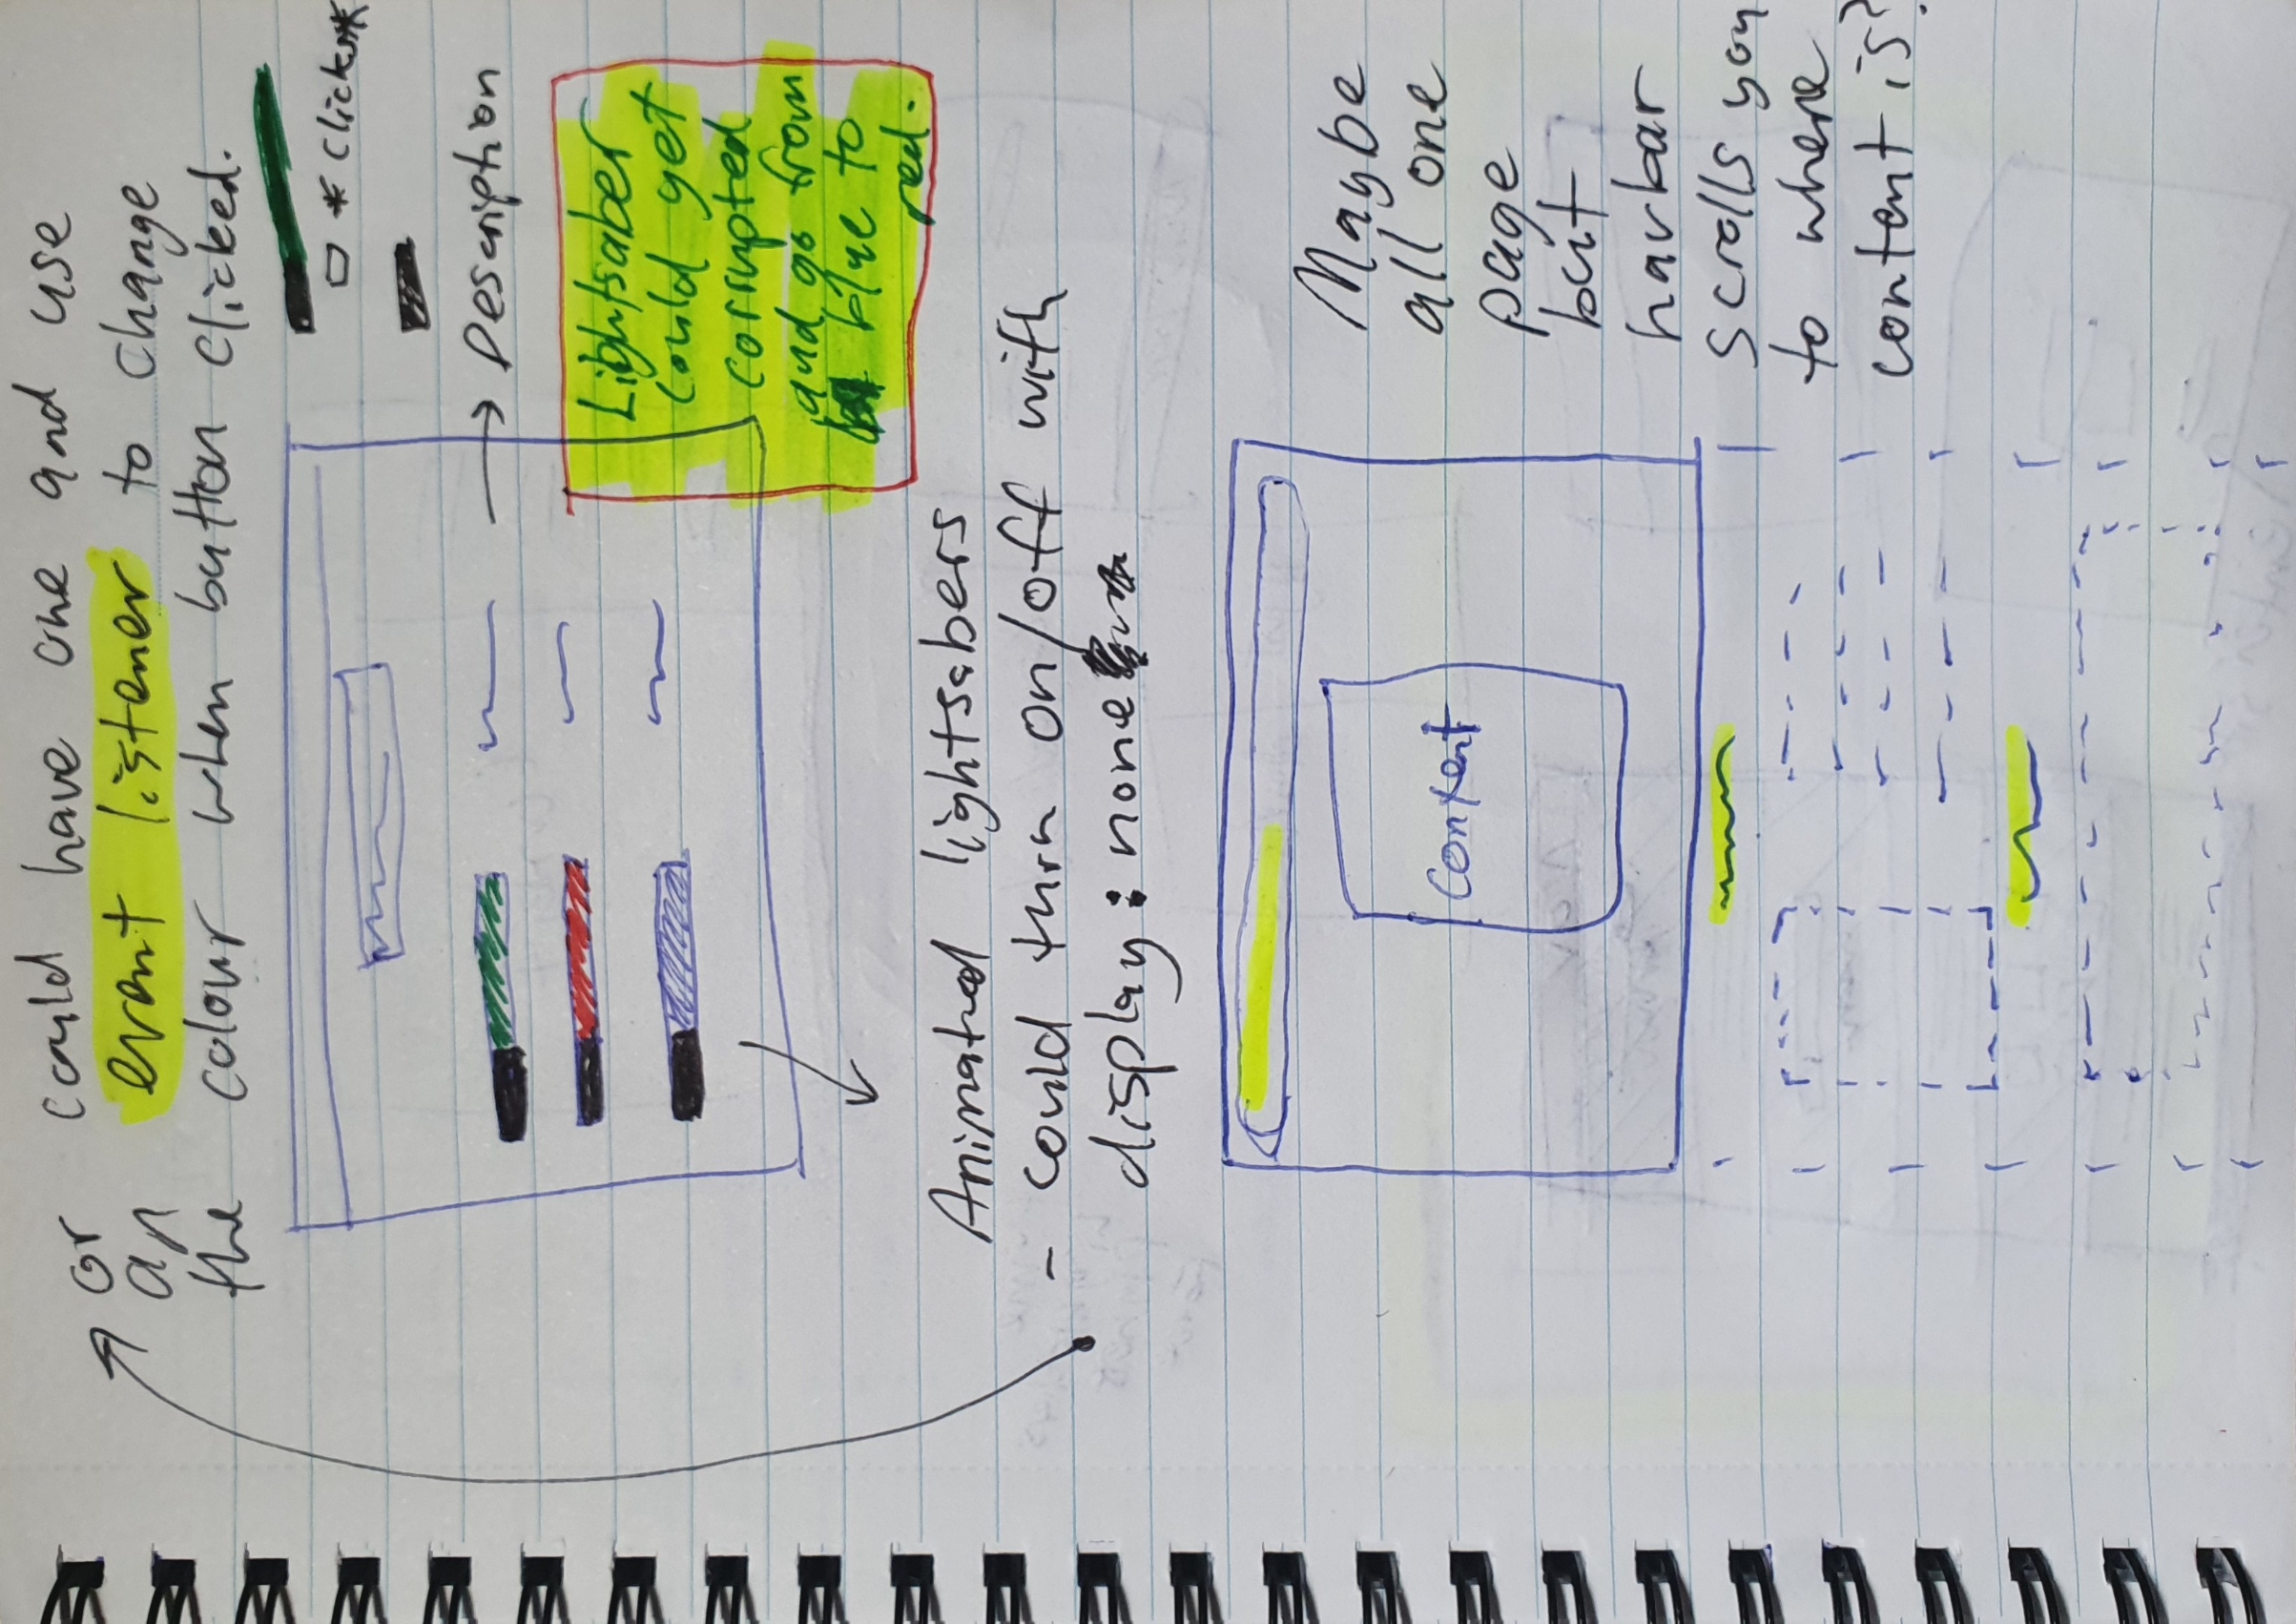 or could have one and use
an event listener to change
the colour when button clicked.
* Clicks *
Description
Lightsaber
could get
corrupted
and go from
blue to
red.
Animated lightsabers
- could turn on/off with
display: none
Content
Maybe
all one
page
but
navbar
scrolls you
to where
content is?